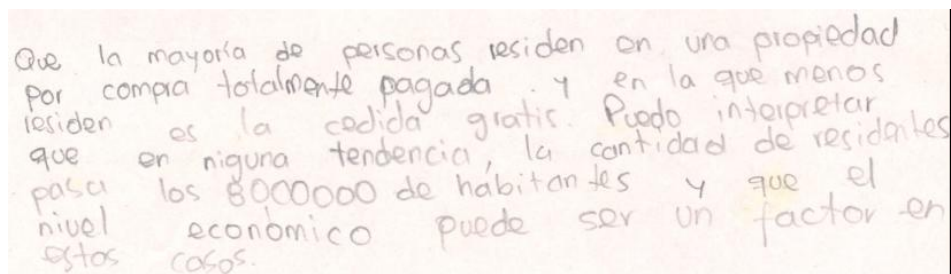 Que la mayoría de personas residen en una propiedad
por compra totalmente pagada. y en la que menos
residen es la cedida gratis. Puedo interpretar
que en niguna tendencia, la cantidad de residentes
pasa los 8000000 de habitantes y que el
nivel económico puede ser un factor en
estos casos.